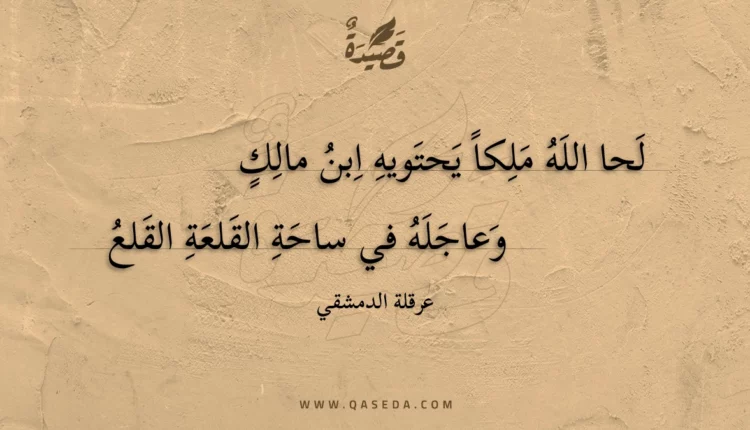 قَصِيْدَةٌ
لَحا اللَهُ مَلِكاً يَحتَويهِ اِبنُ مالِكٍ
وَعاجَلَهُ في ساحَةِ القَلعَةِ القَلعُ
عرقلة الدمشقي
WWW.QASEDA.COM